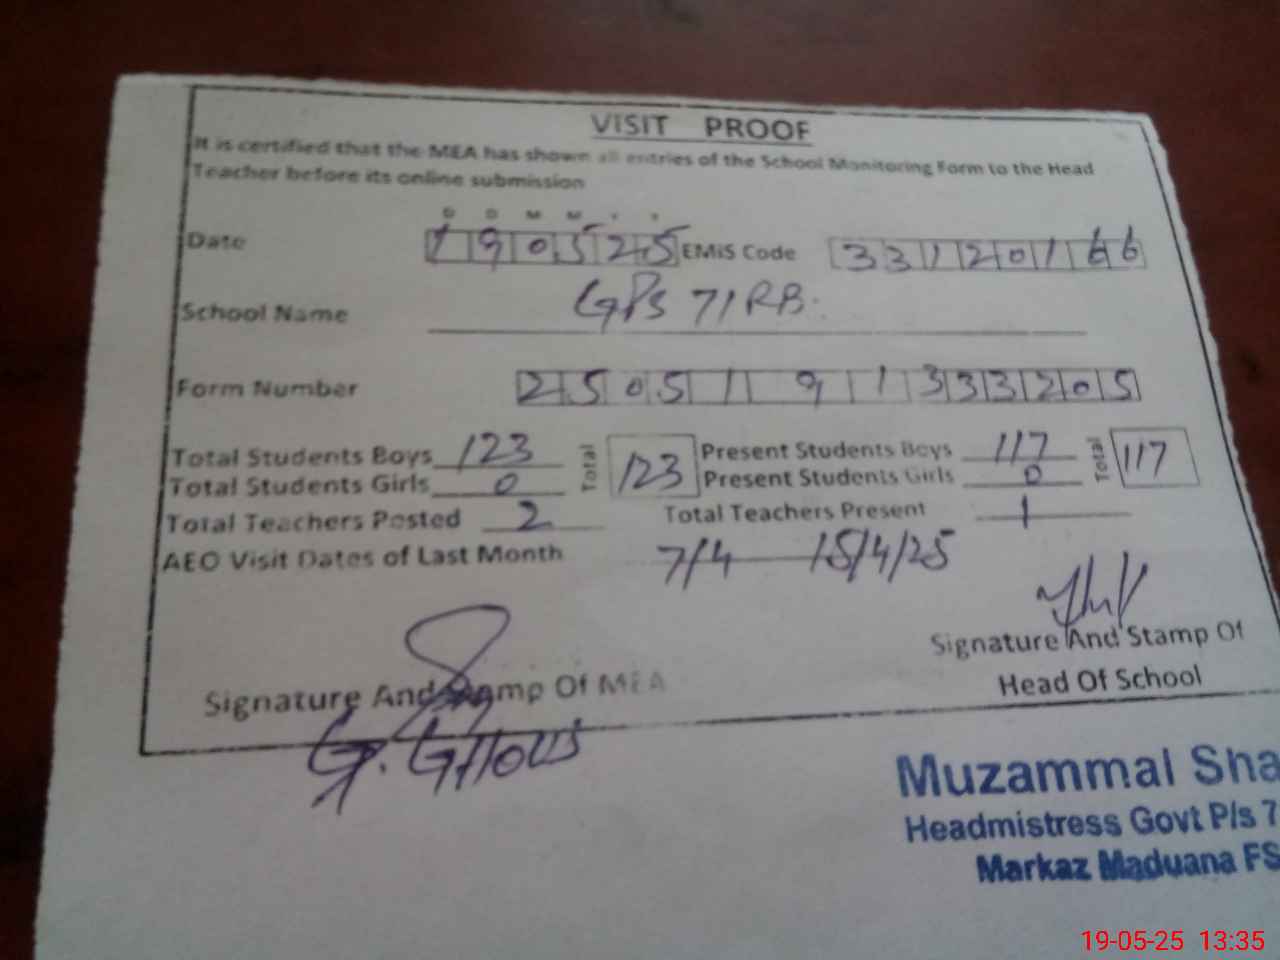 VISIT PROOF
It is certified that the MEA has shown all entries of the School Monitoring Form to the Head
Teacher before its online submission
D D M M Y Y
Date 190525 EMIS Code 33120166
School Name GPS 71 RB.
Form Number 2505191333205
Total Students Boys 123 Total 123 Present Students Boys 117 Total 117
Total Students Girls 0 Present Students Girls 0
Total Teachers Posted 2 Total Teachers Present 1
AEO Visit Dates of Last Month 7/4 15/4/25
Signature And Stamp Of MEA
Signature And Stamp Of
Head Of School
Muzammal Sha
Headmistress Govt P/s 7
Markaz Maduana FS
19-05-25 13:35